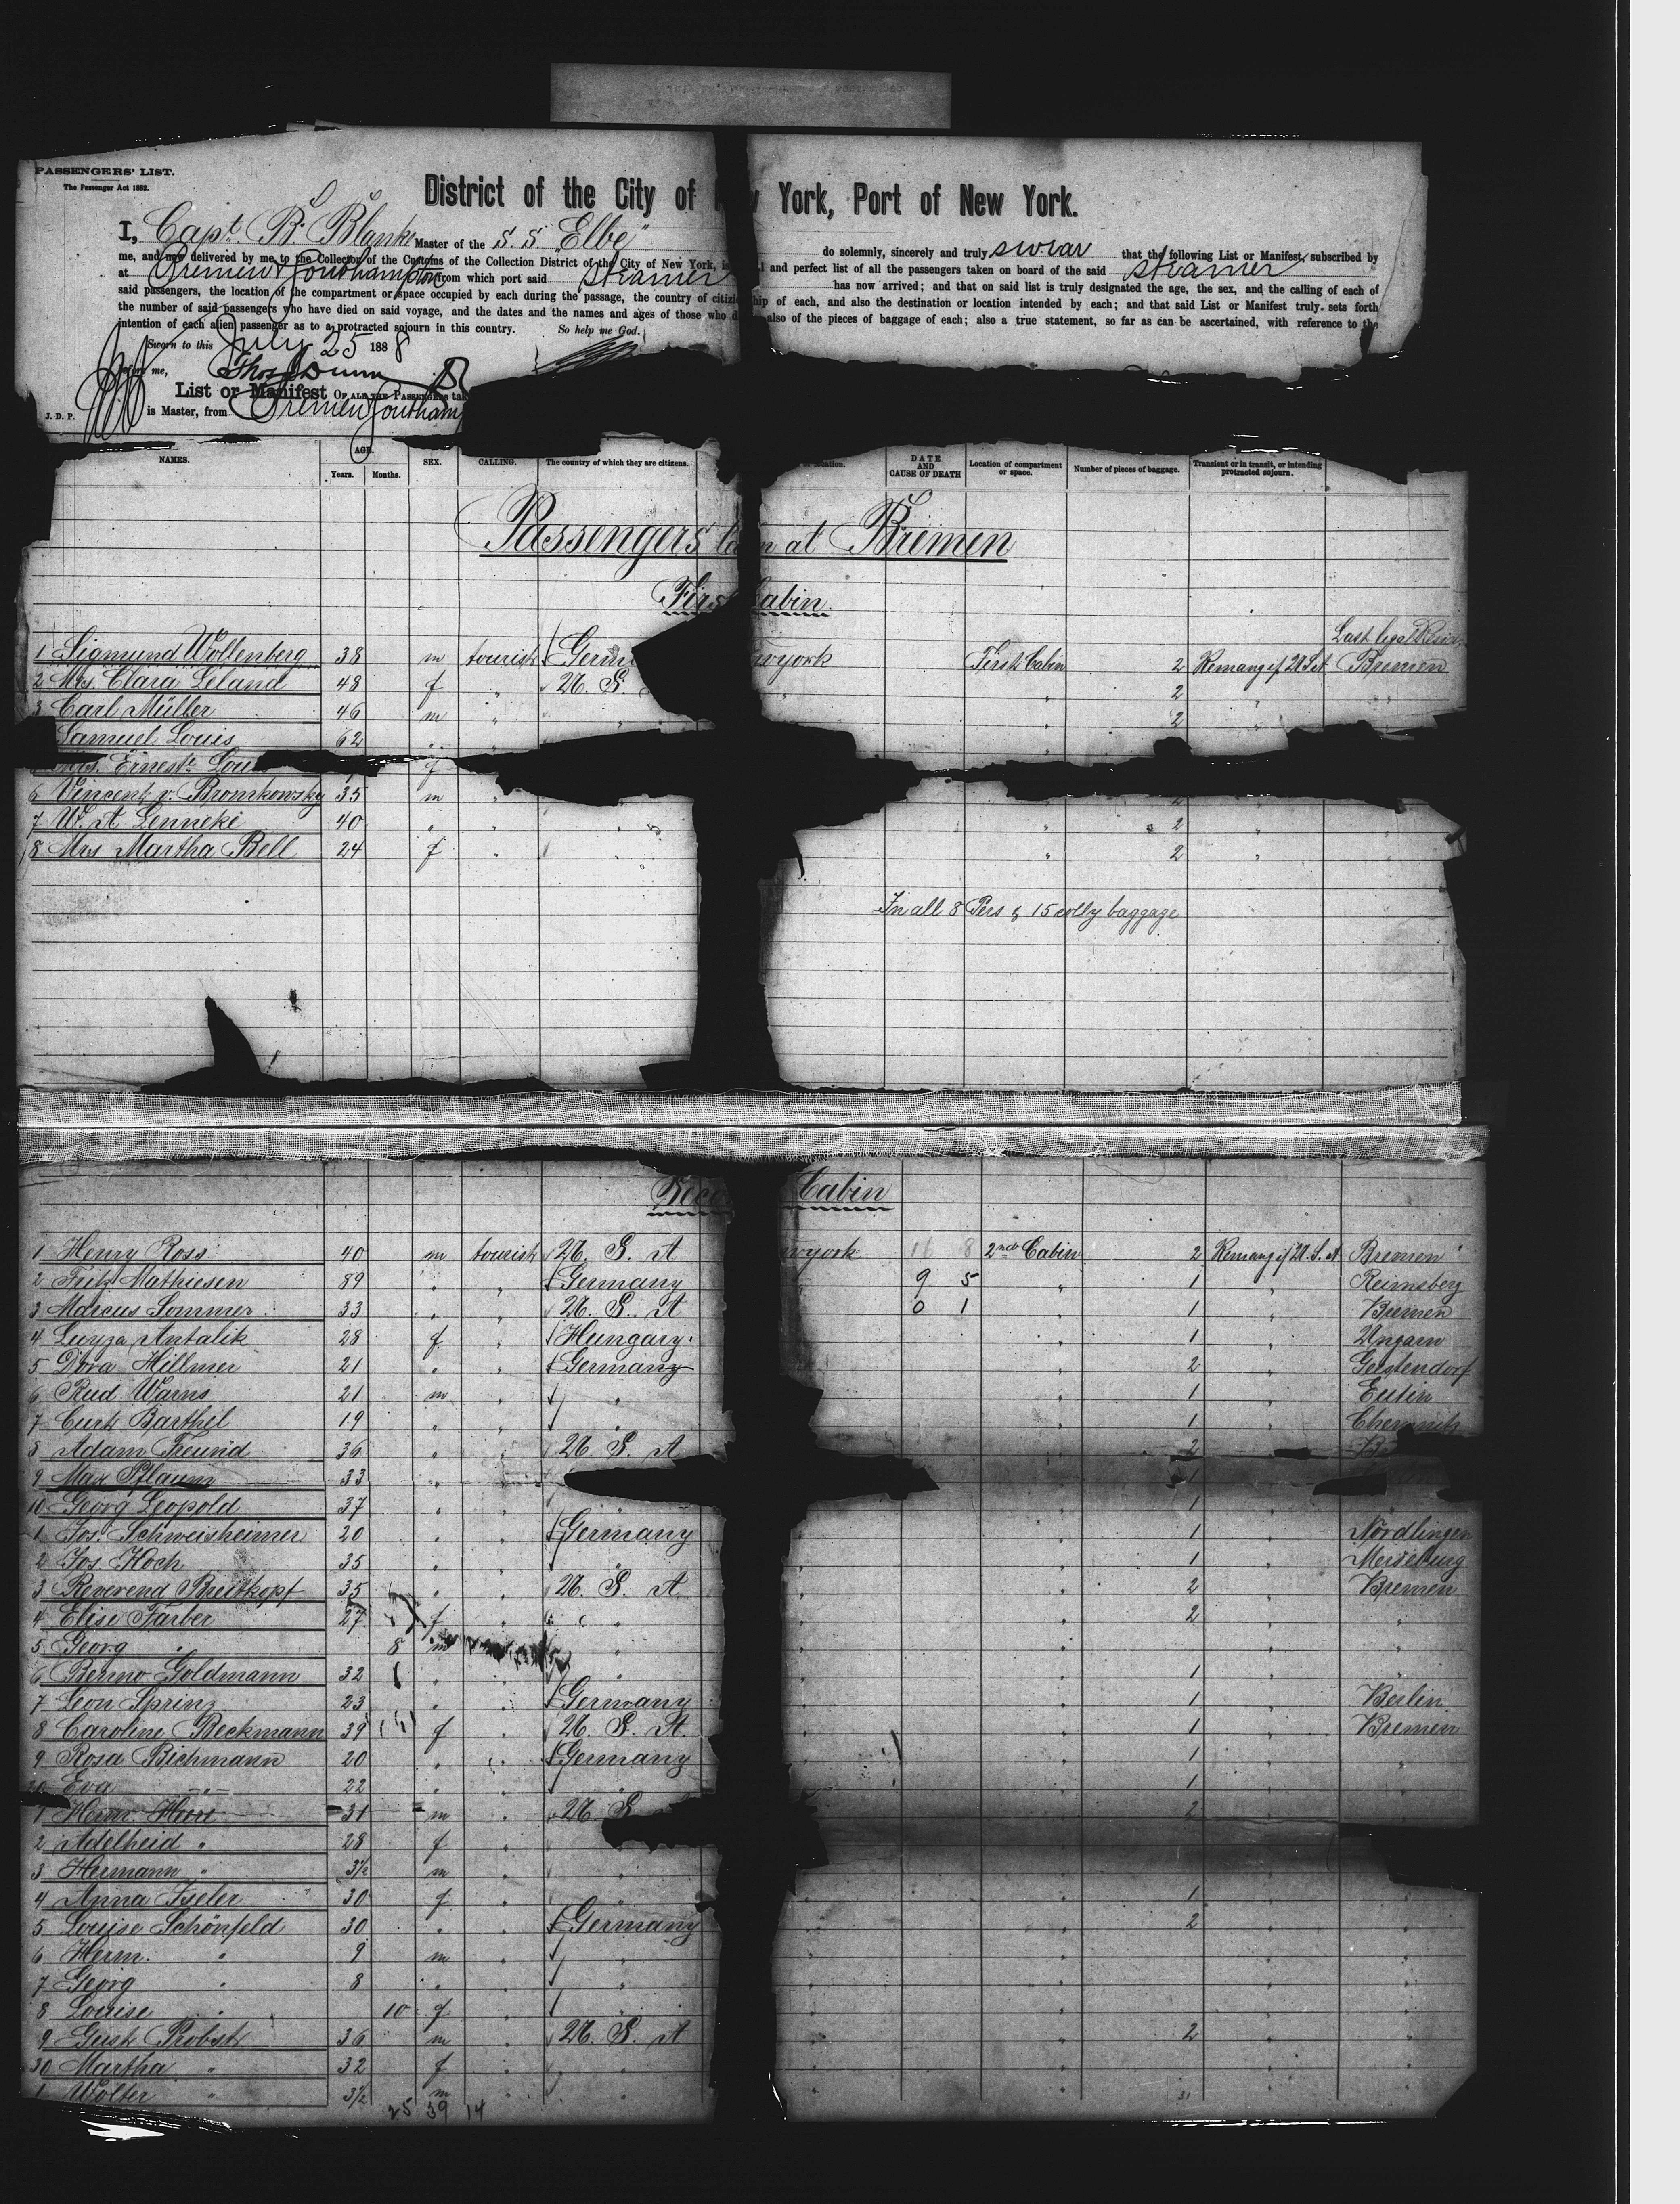 PASSENGERS' LIST.
The Passenger Act 1882.
District of the City of New York, Port of New York.
I, Capt. B. Blanke Master of the S. S. "Elbe" do solemnly, sincerely and truly swear that the following List or Manifest, subscribed by
me, and now delivered by me to the Collector of the Customs of the Collection District of the City of New York, is and perfect list of all the passengers taken on board of the said steamer
at Bremen & Southampton from which port said steamer has now arrived; and that on said list is truly designated the age, the sex, and the calling of each of
said passengers, the location of the compartment or space occupied by each during the passage, the country of citizenship of each, and also the destination or location intended by each; and that said List or Manifest truly sets forth
the number of said passengers who have died on said voyage, and the dates and the names and ages of those who also of the pieces of baggage of each; also a true statement, so far as can be ascertained, with reference to the
intention of each alien passenger as to a protracted sojourn in this country. So help me God.
Sworn to this July 25 1888
before me, Thos Dunn
List or Manifest OF ALL THE PASSENGERS
J. D. P. is Master, from Bremen Southam
NAMES. AGE. Years. Months. SEX. CALLING. The country of which they are citizens. location. DATE AND CAUSE OF DEATH Location of compartment or space. Number of pieces of baggage. Transient or in transit, or intending protracted sojourn.
Passengers at Bremen
First Cabin
Last legal
1 Sigmund Wollenberg 38 m tourist Germ wyork First Cabin 2 Bremen
2 Mrs. Clara Leland 48 f " U. S. " " 2 "
3 Carl Müller 46 m " " " 2 "
Samuel Louis 62 " " "
Mrs. Ernest. Lou f
6 Vincent v. Bromkowsky 35 m "
7 W. A Lenneke 40 " " " " 2 "
8 Mrs Martha Bell 24 f " " 2 "
In all 8 Pers & 15 colly baggage
Second Cabin
1 Henry Ross 40 m tourist U. S. A wyork 16 8 2nd Cabin 2 Bremen
2 Fritz Mathiesen 89 " " Germany 9 5 " 1 " Reinsberg
3 Marcus Sommer 33 " " U. S. A 0 1 " 1 " Bremen
4 Luyza Antalik 28 f " Hungary " 1 " Ungarn
5 Dora Hillmer 21 " " Germany " 2 " Geestendorf
6 Rud Warns 21 m " " " 1 " Eutin
7 Curt Barthel 19 " " " " 1 " Chemnitz
8 Adam Freund 36 " " U. S. A " 2 "
9 Max Pflaum 33 " " 1
10 Georg Leopold 37 " " " 1 " "
1 Jos. Schweisheimer 20 " " Germany " " 1 " Nördlingen
2 Jos. Koch 35 " " " " " 1 " Merseburg
3 Reverend Breitkopf 35 " " U. S. A " " 2 " Bremen
4 Elise Färber 27 f " " " " 2 " "
5 Georg " 8 m " " " " "
6 Benno Goldmann 32 " " " " " 1 " "
7 Leon Sprinz 23 " " Germany " " 1 " Berlin
8 Caroline Beckmann 39 f " U. S. A. " " 1 " Bremen
9 Rosa Bichmann 20 " " Germany " 1 " "
20 Eva " 22 " " " " 1 " "
1 Herm. 31 m " U. S. 2 "
2 Adelheid " 28 f "
3 Hermann " 3½ m " "
4 Anna Iseler 30 f " " " " 1 " "
5 Louise Schönfeld 30 " " Germany " " 2 " "
6 Herm. " 9 m " " " " " "
7 Georg " 8 " " " " " " "
8 Louise " 10 f " " " " " "
9 Gust Probst 36 m " U. S. A " " 2 " "
30 Martha " 32 f " " " " " "
1 Wolter " 3½ m " " " " " "
25 39 14 31